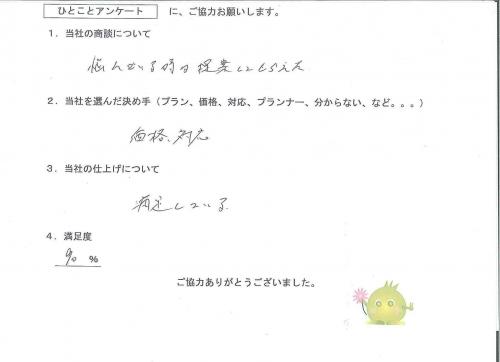 ひとことアンケート に、ご協力お願いします。
1．当社の商談について
悩んでいる時の提案してもらえた
2．当社を選んだ決め手（プラン、価格、対応、プランナー、分からない、など。。。）
価格、対応
3．当社の仕上げについて
満足している
4．満足度
90 %
ご協力ありがとうございました。